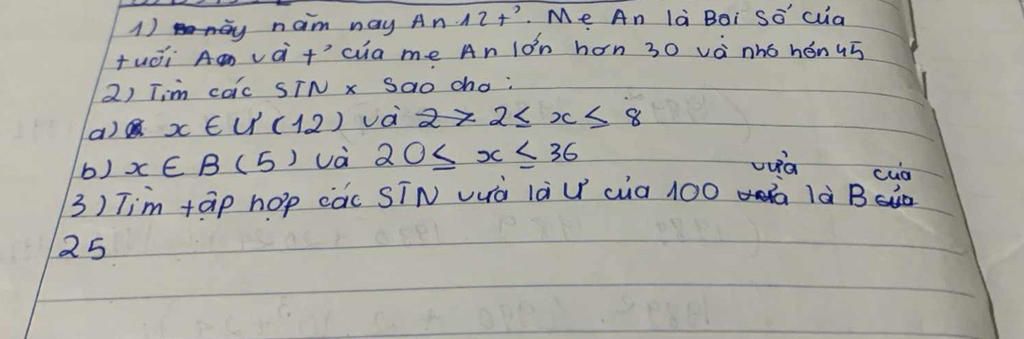 1) này năm nay An 12 t². Mẹ An là Bội Số của
tuổi An và t² của mẹ An lớn hơn 30 và nhỏ hơn 45
2) Tìm các STN x sao cho:
a) x ∈ Ư (12) và 2 ≤ x ≤ 8
b) x ∈ B (5) và 20 ≤ x ≤ 36
3) Tìm tập hợp các STN vừa là Ư của 100 vừa là B của
25